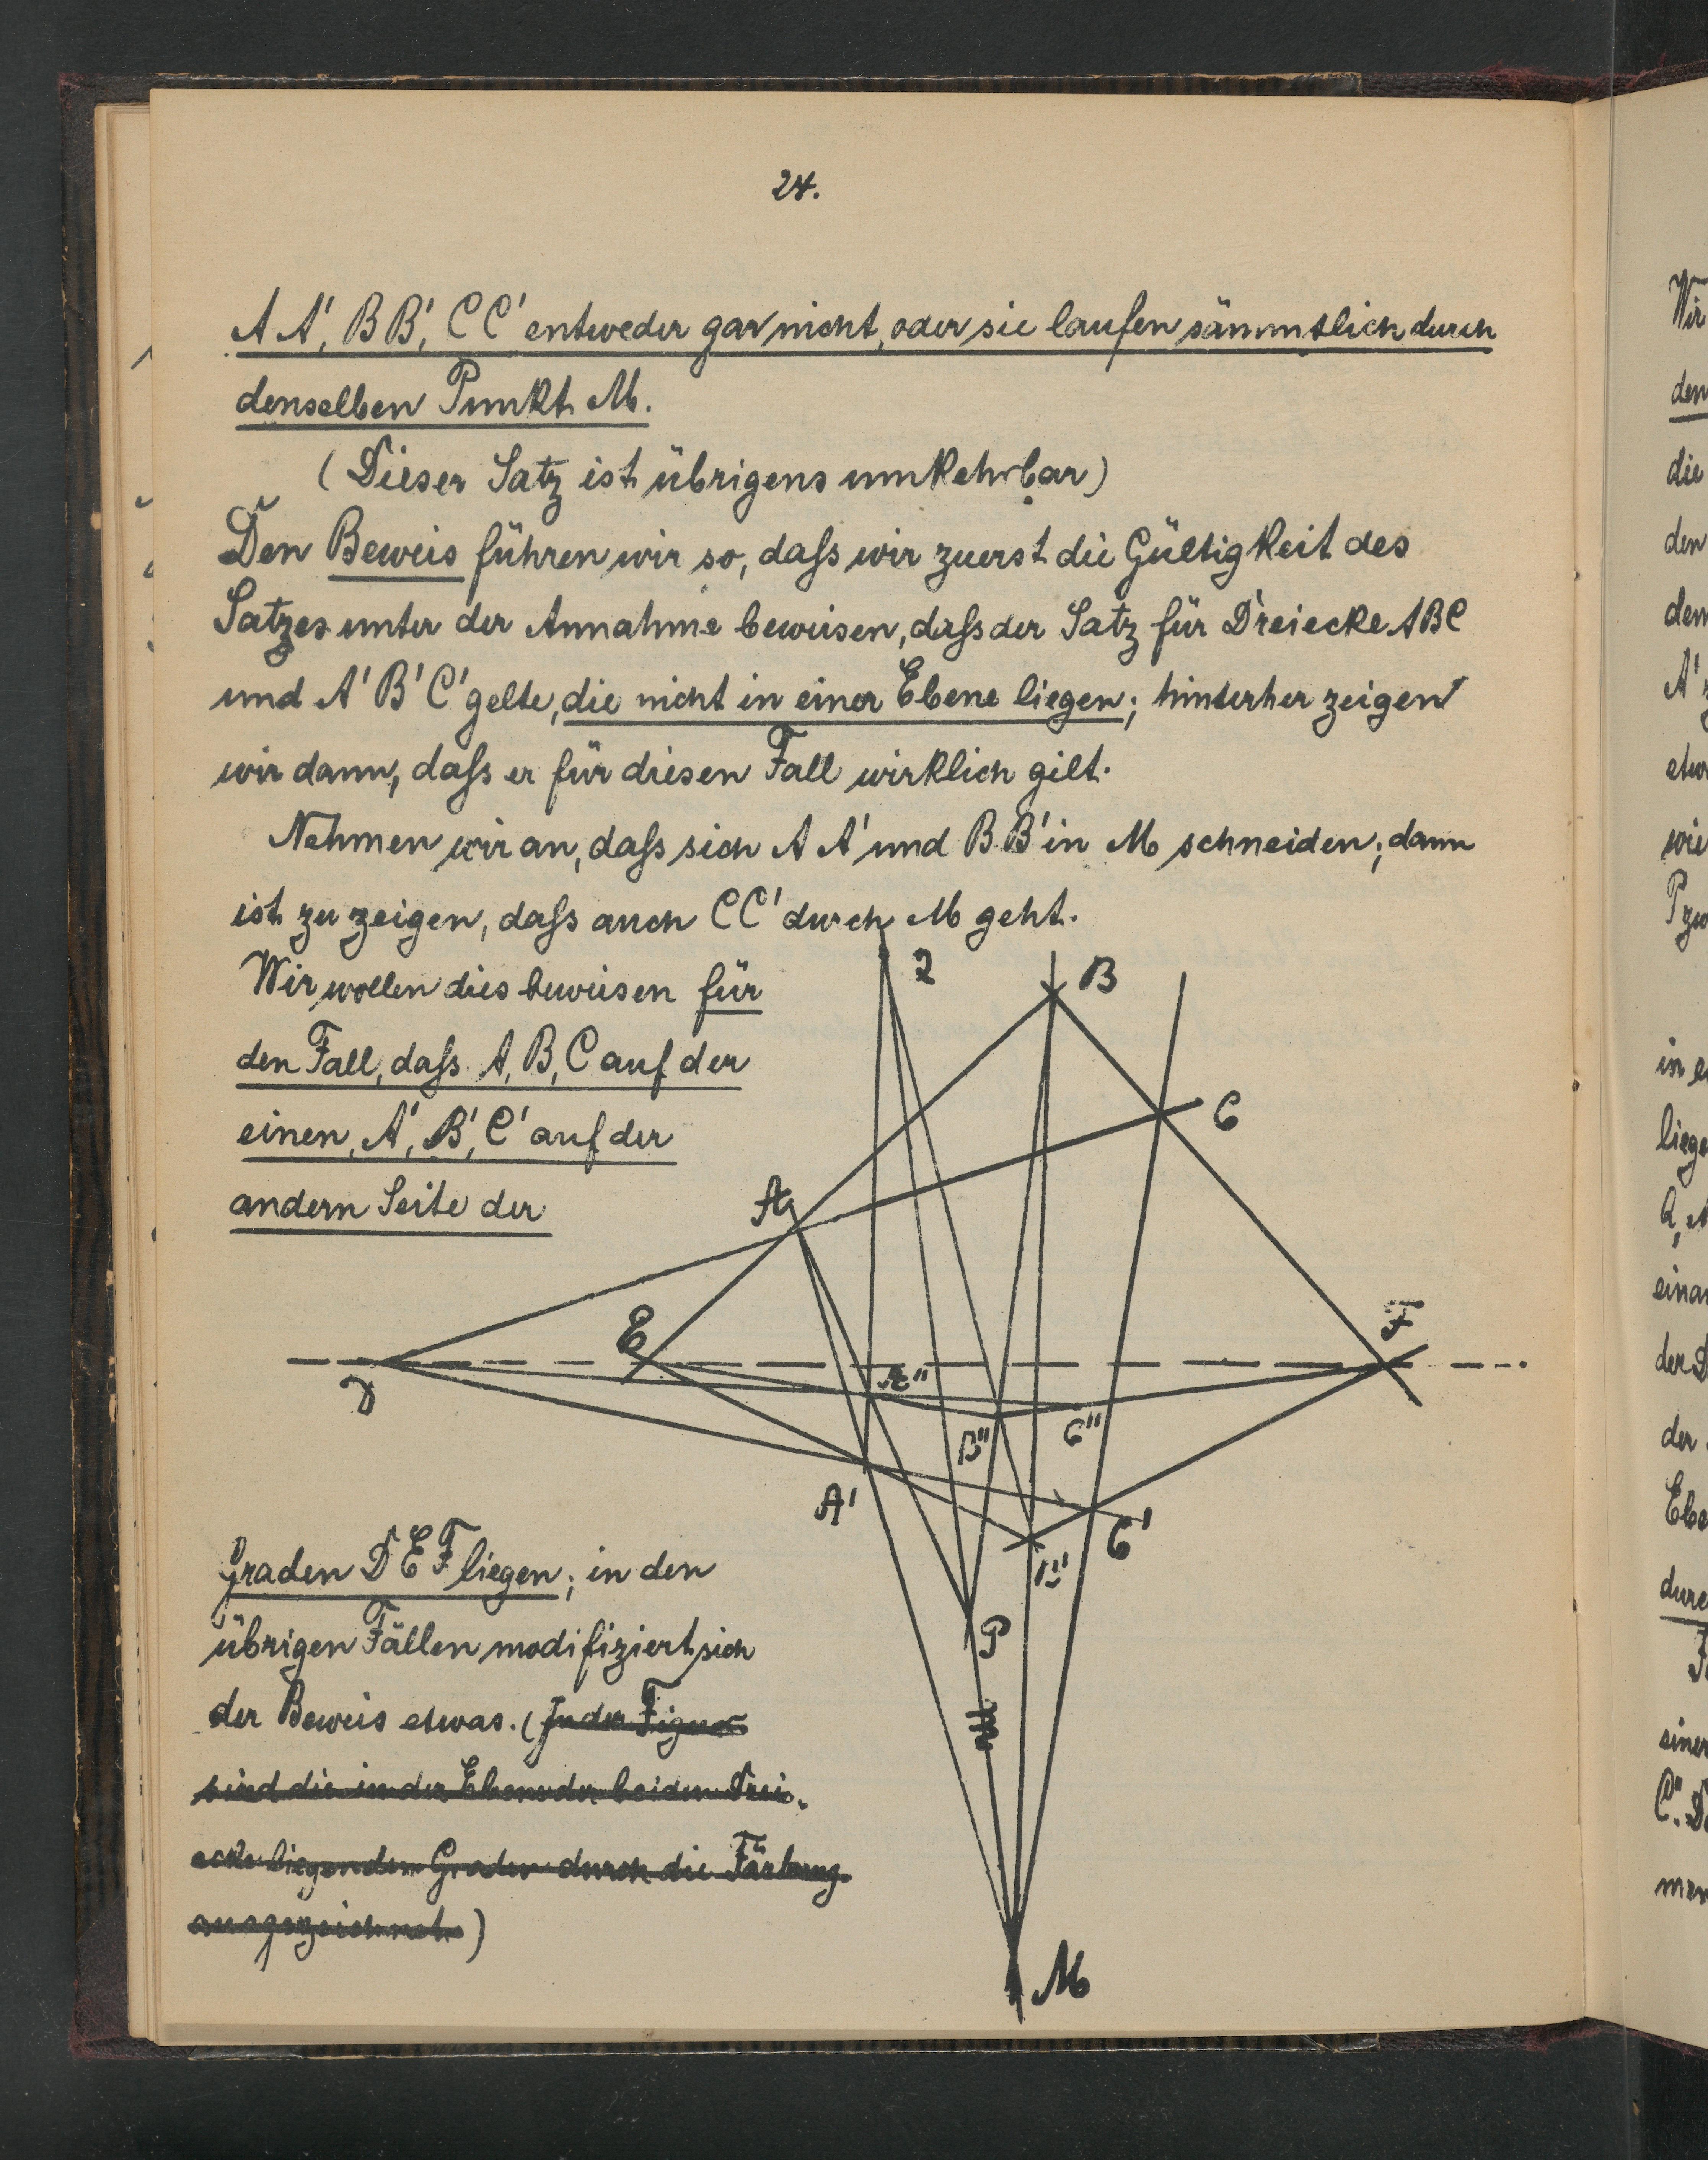 24.
A A', B B', C C' entweder gar nicht, oder sie laufen sämmtlich durch
denselben Punkt M.
(Dieser Satz ist übrigens umkehrbar)
Den Beweis führen wir so, daſs wir zuerst die Gültigkeit des
Satzes unter der Annahme beweisen, daſs der Satz für Dreiecke ABC
und A' B' C' gelte, die nicht in einer Ebene liegen; hinterher zeigen
wir dann, daſs er für diesen Fall wirklich gilt.
Nehmen wir an, daſs sich A A' und B B' in M schneiden; dann
ist zu zeigen, daſs auch CC' durch M geht.
Wir wollen dies beweisen für
den Fall, daſs A, B, C auf der
einen, A', B', C' auf der
andern Seite der
Graden D E F liegen; in den
übrigen Fällen modifiziert sich
der Beweis etwas. (In der Figur
sind die in der Ebene der beiden Drei-
ecke liegenden Graden durch die Färbung
ausgezeichnet.)
B
C
A
E
F
D
A''
B''
C''
A'
C'
B'
P
M
Wir
den
die
den
dem
A'
wie
in
der
der
Ebe
einer
C''.